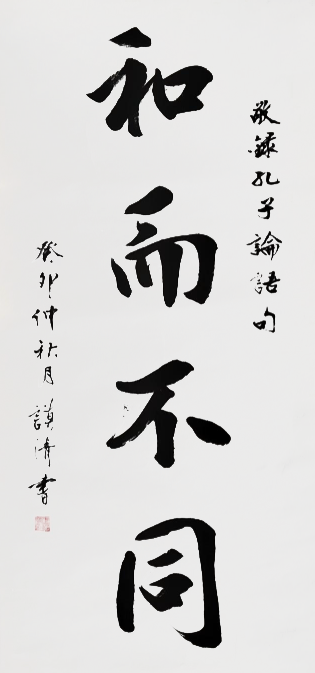 敬錄孔子論語句
和而不同
癸卯仲秋月謨濟書